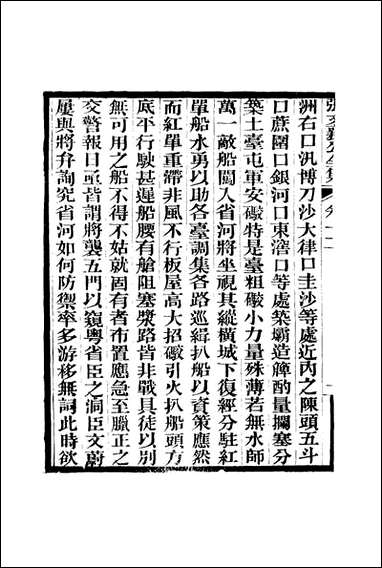 張文襄公全集 卷十一
洲右口汛博刀沙大律口圭沙等處近內之陳頭五斗
口蔗圍口銀河口東滘口等處築壩造簰酌量攔塞分
築土臺屯軍安礮特是臺粗礮小力量殊薄若無水師
萬一敵船闖入省河將坐視其縱橫城下復經分駐紅
單船水勇以助各臺調集各路巡緝扒船以資策應然
而紅單重滯非風不行板屋高大招礮引火扒船頭方
底平行駛甚遲船腰有艙阻塞漿路皆非戰具徒以別
無可用之船不得不姑就固有者布置應急至臘正之
交警報日亟皆謂將襲五門以窺粵省臣之洞臣文蔚
屢與將弁詢究省河如何防禦率多游移無詞此時欲